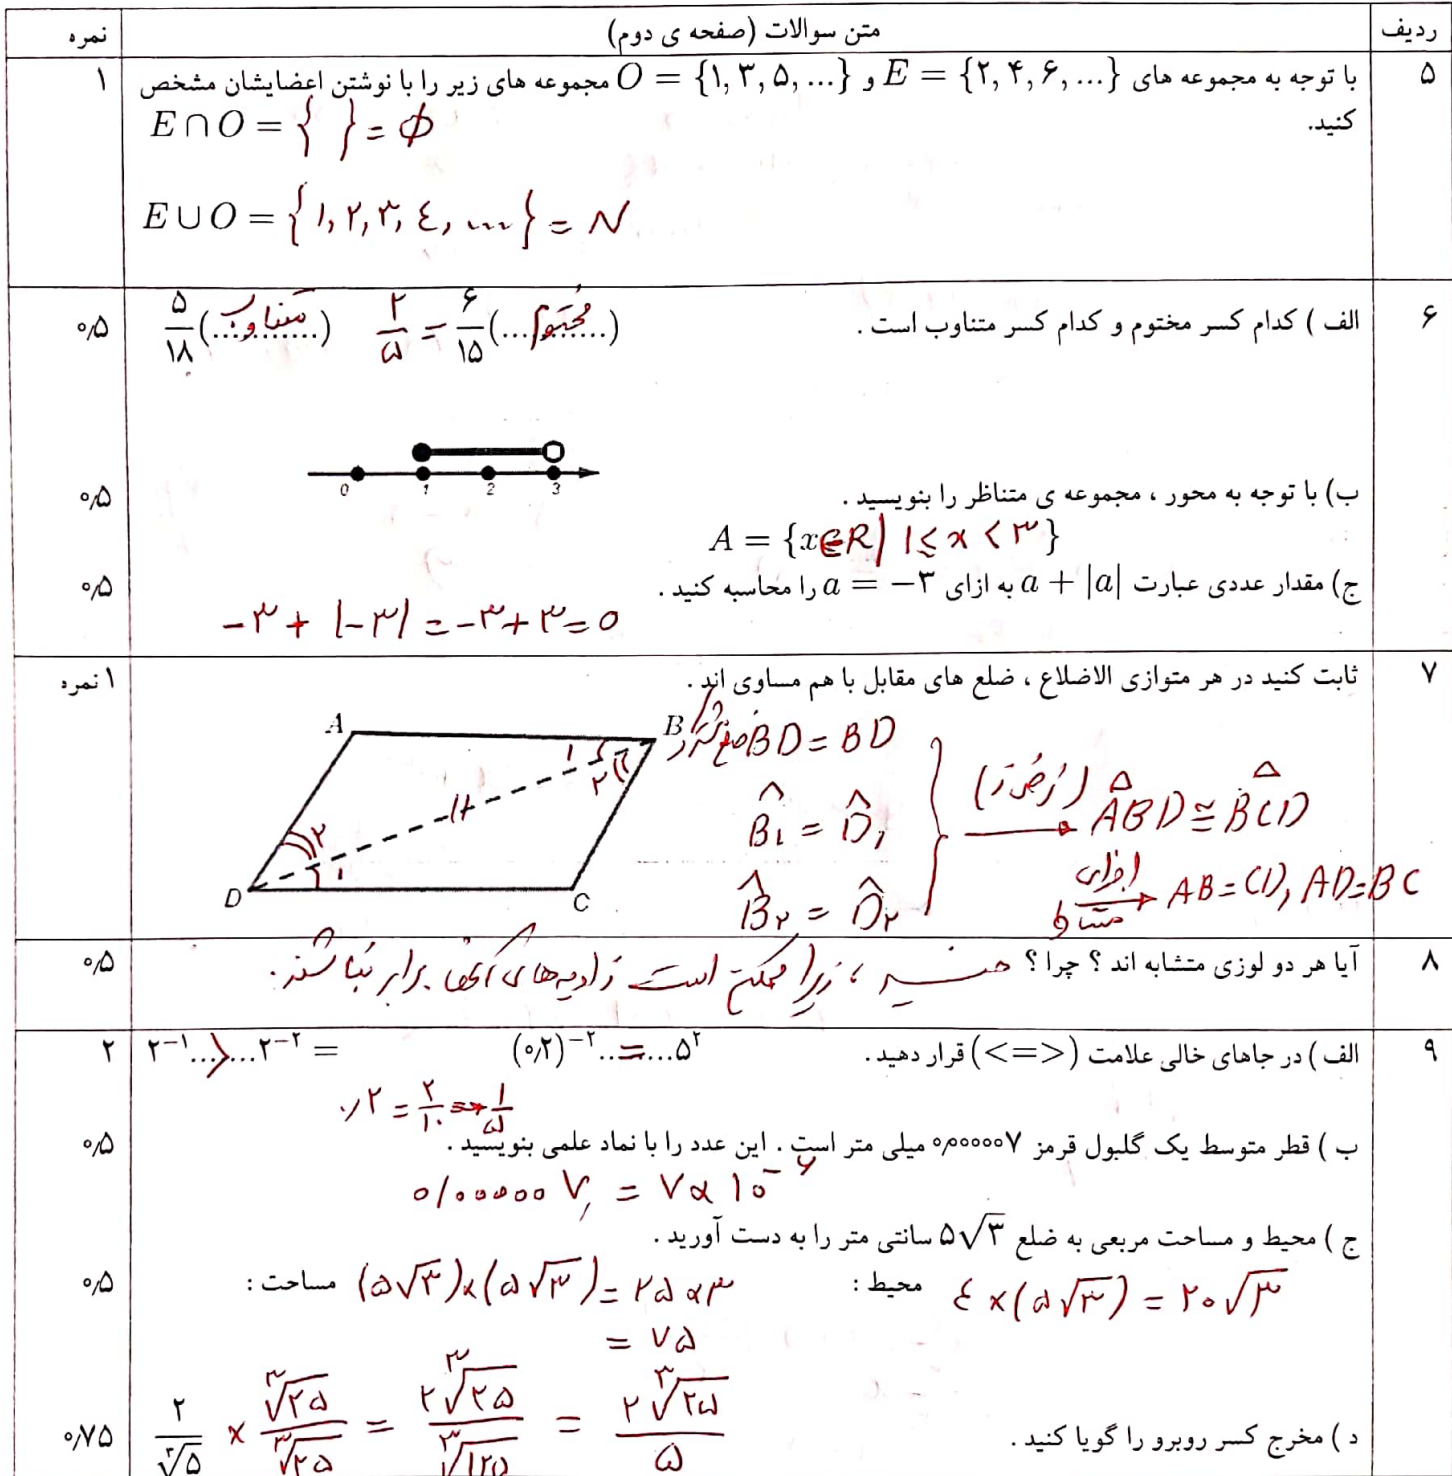 ردیف
متن سوالات (صفحه ی دوم)
نمره
۵
با توجه به مجموعه های E = {۲, ۴, ۶, ...} و O = {۱, ۳, ۵, ...} مجموعه های زیر را با نوشتن اعضایشان مشخص
۱
کنید.
E ∩ O = { } = ϕ
E ∪ O = {۱, ۲, ۳, ٤, ...} = N
۶
الف ) کدام کسر مختوم و کدام کسر متناوب است .
۲/۵ = ۶/۱۵ (...مختوم...)
۵/۱۸ (...متناوب...)
۰٫۵
0 1 2 3
ب) با توجه به محور ، مجموعه ی متناظر را بنویسید .
۰٫۵
A = {x∈R | ۱ ≤ x < ۳}
ج) مقدار عددی عبارت a + |a| به ازای a = −۳ را محاسبه کنید .
۰٫۵
−۳ + |−۳| = −۳+۳=0
۷
ثابت کنید در هر متوازی الاضلاع ، ضلع های مقابل با هم مساوی اند .
۱ نمره
A B
D C
۱ ۲
۲ ۱
ضلع مشترک BD = BD
B̂۱ = D̂۱
B̂۲ = D̂۲
(زض ز) ABD ≅ BCD
اجزای متناظر AB=CD, AD=BC
۸
آیا هر دو لوزی متشابه اند ؟ چرا ؟ خیر ، زیرا ممکن است زاویه های آنها برابر نباشند .
۰٫۵
۹
الف ) در جاهای خالی علامت (<=>) قرار دهید .
(۰٫۲)⁻²...=...۵²
۲⁻¹...>...۲⁻² =
۲
۰٫۲ = ۲/۱۰ = ۱/۵
ب ) قطر متوسط یک گلبول قرمز ۰٫۰۰۰۰۰۷ میلی متر است . این عدد را با نماد علمی بنویسید .
۰٫۵
۰٫۰۰۰۰۰۷ = ۷×۱۰⁻⁶
ج ) محیط و مساحت مربعی به ضلع ۵√۳ سانتی متر را به دست آورید .
محیط : ٤ × (۵√۳) = ۲۰√۳
مساحت : (۵√۳)×(۵√۳) = ۲۵×۳
۰٫۵
= ۷۵
د ) مخرج کسر روبرو را گویا کنید .
۲/∛۵ × ∛۲۵/∛۲۵ = ۲∛۲۵/∛۱۲۵ = ۲∛۲۵/۵
۰٫۷۵